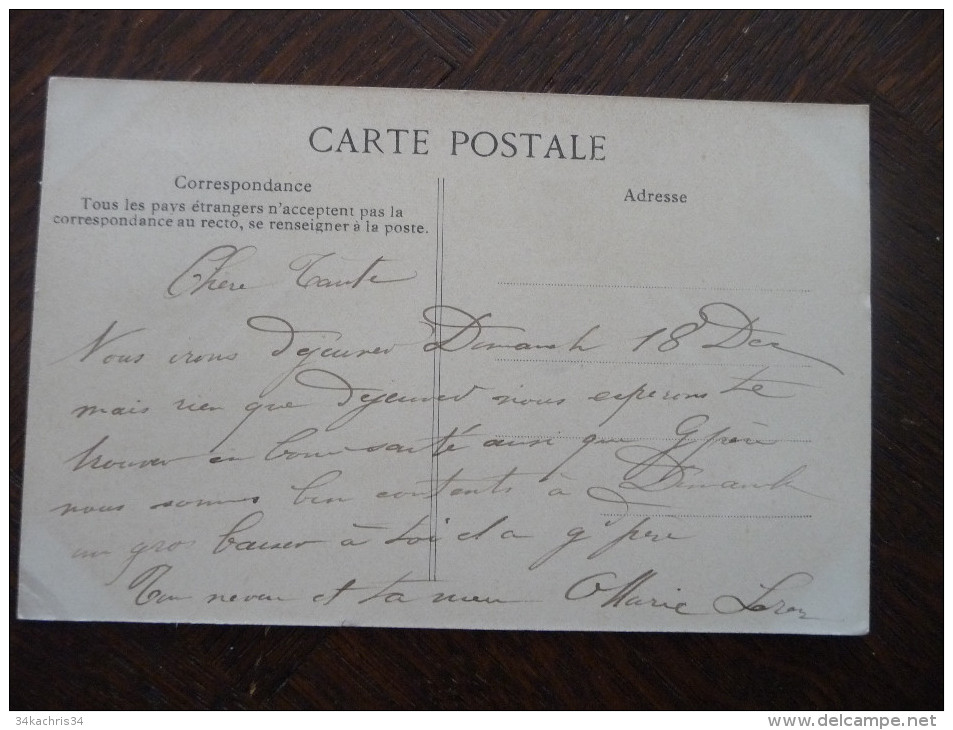 CARTE POSTALE
Correspondance
Tous les pays étrangers n'acceptent pas la
correspondance au recto, se renseigner à la poste.
Adresse
Chère Tante
Nous irons déjeuner Dimanche 18 Dec
mais rien que déjeuner nous esperons te
trouver en bonne santé ainsi que Gpère
nous sommes bien contents à Dimanche
un gros baiser à toi et a g^d père
Ton neveu et ta niece Marie
34kachris34
www.delcampe.net